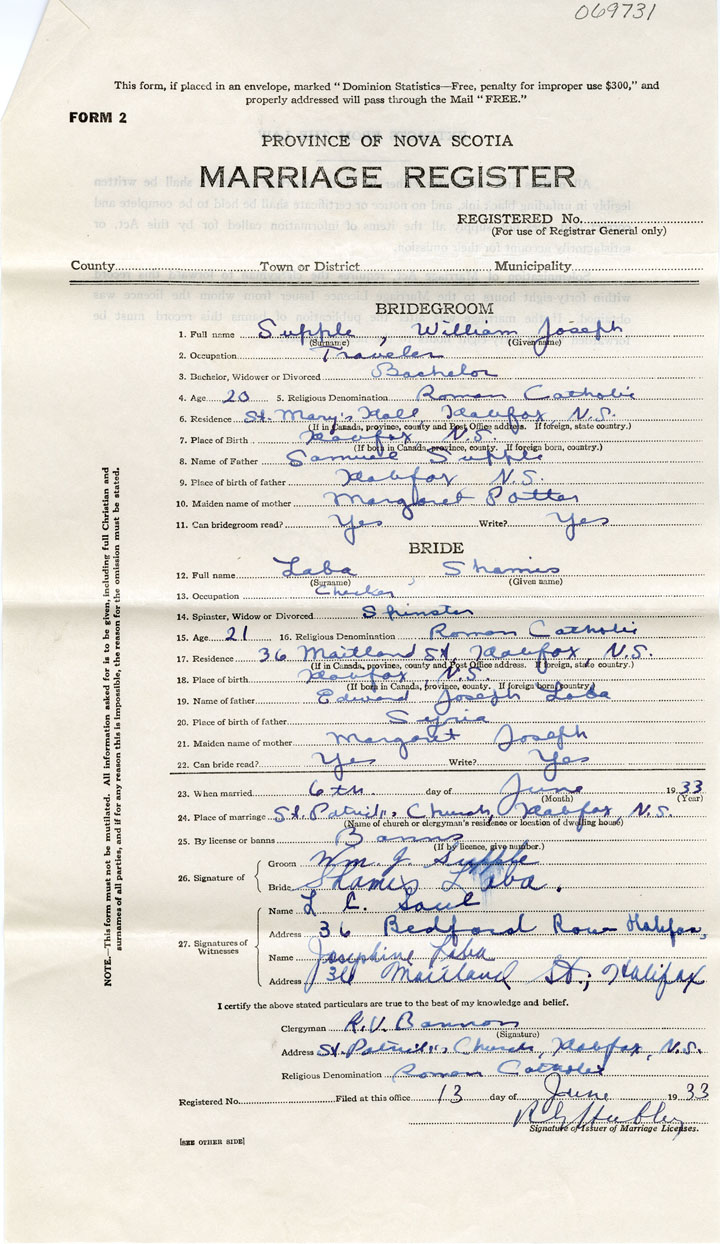 069731
This form, if placed in an envelope, marked "Dominion Statistics—Free, penalty for improper use $300," and
properly addressed will pass through the Mail "FREE."
FORM 2
PROVINCE OF NOVA SCOTIA
MARRIAGE REGISTER
REGISTERED No.
(For use of Registrar General only)
County Town or District Municipality
BRIDEGROOM
1. Full name Supple, William Joseph
(Surname) (Given name)
2. Occupation Traveler
3. Bachelor, Widower or Divorced Bachelor
4. Age 20 5. Religious Denomination Roman Catholic
6. Residence St. Mary's Hall, Halifax, N.S.
(If in Canada, province, county and Post Office address. If foreign, state country.)
7. Place of Birth Halifax N.S.
(If born in Canada, province, county. If foreign born, country.)
8. Name of Father Samuel Supple
9. Place of birth of father Halifax N.S.
10. Maiden name of mother Margaret Potter
11. Can bridegroom read? Yes Write? Yes
BRIDE
12. Full name Laba, Shamis
(Surname) (Given name)
13. Occupation Checker
14. Spinster, Widow or Divorced Spinster
15. Age 21 16. Religious Denomination Roman Catholic
17. Residence 36 Maitland St, Halifax, N.S.
(If in Canada, province, county and Post Office address. If foreign, state country.)
18. Place of birth Halifax, N.S.
(If born in Canada, province, county. If foreign born country)
19. Name of father Edward Joseph Laba
20. Place of birth of father Syria
21. Maiden name of mother Margaret Joseph
22. Can bride read? Yes Write? Yes
23. When married 6th day of June 1933
(Month) (Year)
24. Place of marriage St. Patrick's Church, Halifax, N.S.
(Name of church or clergyman's residence or location of dwelling house)
25. By license or banns Banns
(If by licence, give number.)
26. Signature of Groom Wm. J. Supple
Bride Shamis Laba.
27. Signatures of Witnesses Name L. C. Saul
Address 36 Bedford Row Halifax,
Name Josephine Laba
Address 36 Maitland St., Halifax
I certify the above stated particulars are true to the best of my knowledge and belief.
Clergyman R.V. Bannon
(Signature)
Address St. Patrick's Church, Halifax, N.S.
Religious Denomination Roman Catholic
Registered No. Filed at this office 13 day of June 1933
Signature of Issuer of Marriage Licenses.
[SEE OTHER SIDE]
NOTE.—This form must not be mutilated. All information asked for is to be given, including full Christian and
surnames of all parties, and if for any reason this is impossible, the reason for the omission must be stated.